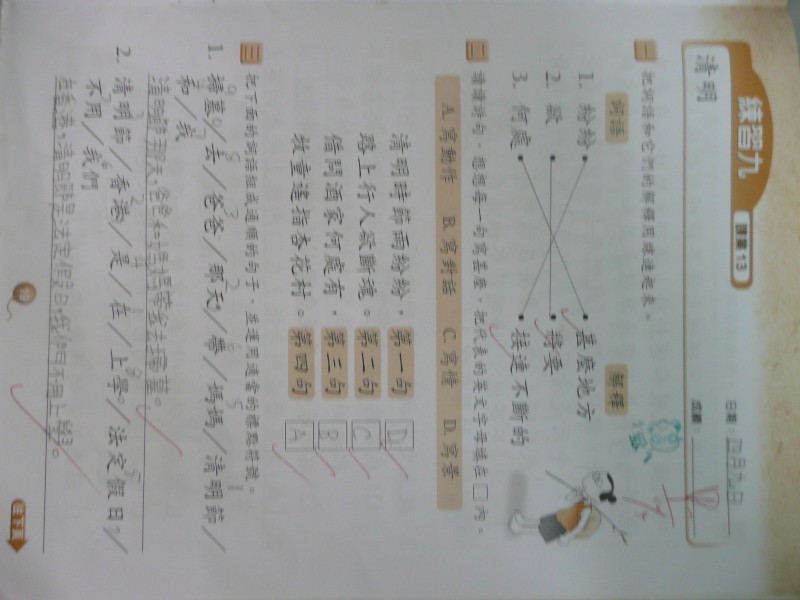 練習九
課書 13
清明
日期：四月九日
成績：
一 把詞語和它們的解釋用線連起來。
詞語 解釋
1. 紛紛 甚麼地方
2. 欲 將要
3. 何處 接連不斷的
二 讀讀詩句，想想每一句寫甚麼，把代表的英文字母填在□內。
A. 寫動作 B. 寫對話 C. 寫情 D. 寫景
清明時節雨紛紛， 第一句 D
路上行人欲斷魂。 第二句 C
借問酒家何處有， 第三句 B
牧童遙指杏花村。 第四句 A
三 把下面的詞語組成通順的句子，並運用適當的標點符號。
1. 掃墓。／去／爸爸／那天，／帶／媽媽／清明節／
和／我
清明節那天，爸爸和媽媽帶我去掃墓。
2. 清明節／香港／是／在／上學。／法定假日，／
不用／我們
在香港，清明節是法定假日，我們不用上學。
19
往下頁